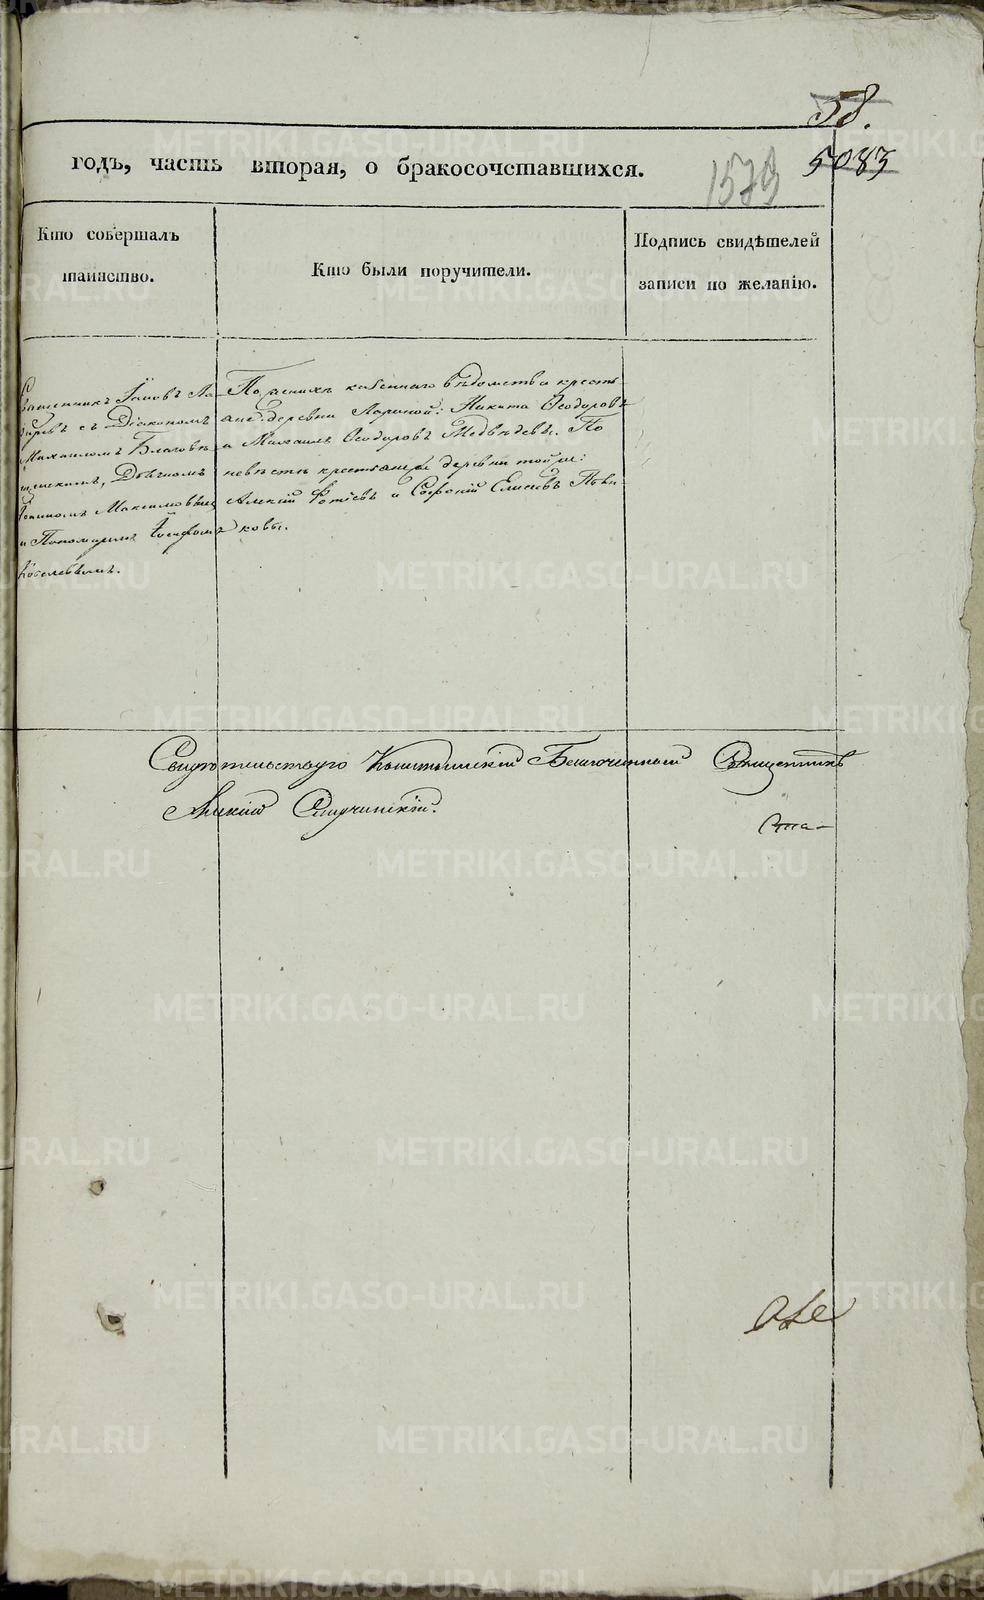 58.
5083
1579
годъ, часть вторая, о бракосочетавшихся.
Кто совершалъ
таинство.
Кто были поручители.
Подпись свидѣтелей
записи по желанію.
Священникъ Іаковъ Ла-
заревъ съ Діакономъ
Михаиломъ Благовѣ-
щенскимъ, Дьячкомъ
Максимовымъ
и Пономаремъ Іосифомъ
По женихѣ казеннаго вѣдомства кресть-
яне деревни Лариной: Никита Ѳеодоровъ
и Михаилъ Ѳеодоровъ Медвѣдевы. По
невѣстѣ крестьяне деревни той же:
Алексій Фотіевъ и Елисеевъ
ковы.
Свидѣтельствую Благочинный Священникъ
Алексій
METRIKI.GASO-URAL.RU